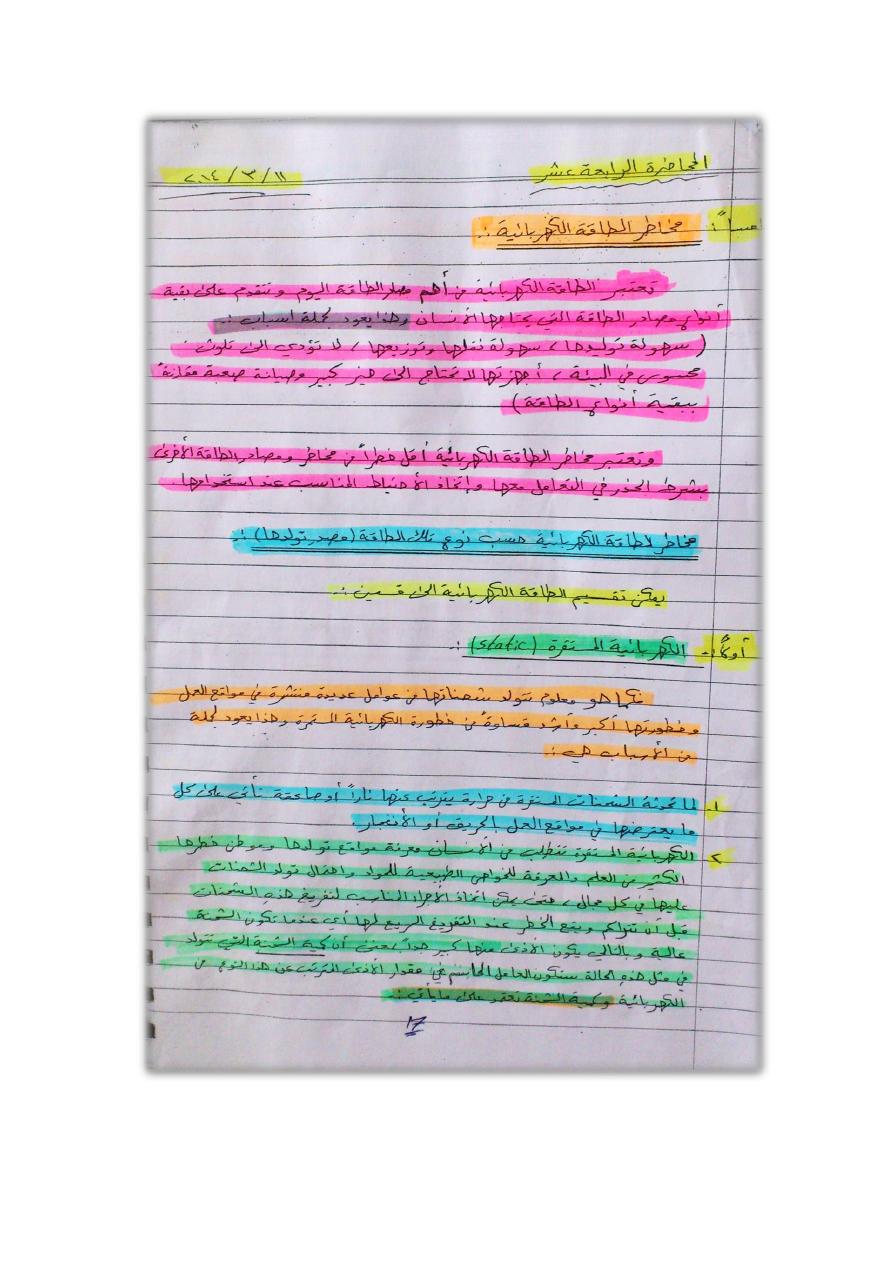 المحاضرة الرابعة عشر
١١ / ٣ / ٢٠١٤
خامساً: مخاطر الطاقة الكهربائية :.
تعتبر الطاقة الكهربائية من أهم مصادر الطاقة اليوم وتتقدم على بقية
أنواع ومصادر الطاقة التي يحتاجها الأنسان وهذا يعود لجملة اسباب :.
( سهولة توليدها ، سهولة نقلها وتوزيعها ، لا تؤدي الى تلوث
محسوس في البيئة ، أجهزتها لا تحتاج الى حيز كبير وصيانة صعبة مقارنةً
ببقية أنواع الطاقة )
وتعتبر مخاطر الطاقة الكهربائية أقل خطراً من مخاطر ومصادر الطاقة الأخرى
بشرط الحذر في التعامل معها وإتخاذ الأحتياط المناسب عند استخدامها .
مخاطر لطاقة الكهربائية حسب نوع تلك الطاقة (مصدر تولدها) :.
يمكن تقسيم الطاقة الكهربائية الى قسمين :.
أولاً :. الكهربائية المستقرة (static) :.
كما هو معلوم تتولد شحناتها من عوامل عديدة منتشرة في مواقع العمل
وخطورتها أكبر وأشد قساوةً من خطورة الكهربائية المستمرة وهذا يعود لجملة
من الأسباب هي :.
١. لما تحدثة الشحنات المستقرة من حرارة يترتب عنها ناراً أو صاعقة تأتي على كل
ما يعترضها في مواقع العمل بالحريق أو الأنفجار .
٢ الكهربائية المستقرة تتطلب من الأنسان معرفة مواقع تولدها وموطن خطرها
الكثير من العلم والمعرفة للخواص الطبيعية للمواد واحتمال تولد الشحنات
عليها في كل مجال ، حتى يمكن اتخاذ الأجراء المناسب لتفريغ هذه الشحنات
قبل أن تتراكم ويقع الخطر عند التفريغ السريع لها أي عندما تكون الشحنة
عالية وبالتالي يكون الأذى منها كبير جداً بمعنى أن كمية الشحنة التي تتولد
في مثل هذه الحالة ستكون العامل الحاسم في مقدار الأذى المترتب عن هذا النوع من
الكهربائية وكمية الشحنة تعتمد على مايأتي :.
١٧